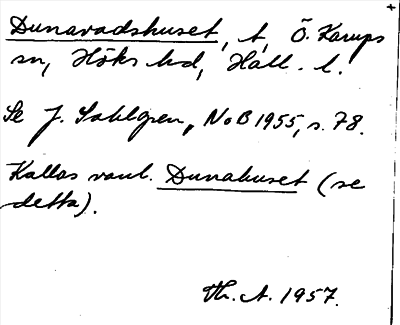 Dunavadshuset, t, Ö. Karups
sn, Höks hd, Hall. l.
Se J. Sahlgren, NoB 1955, s. 78.
Kallas vanl. Dunahuset (se
detta).
Th. A. 1957.